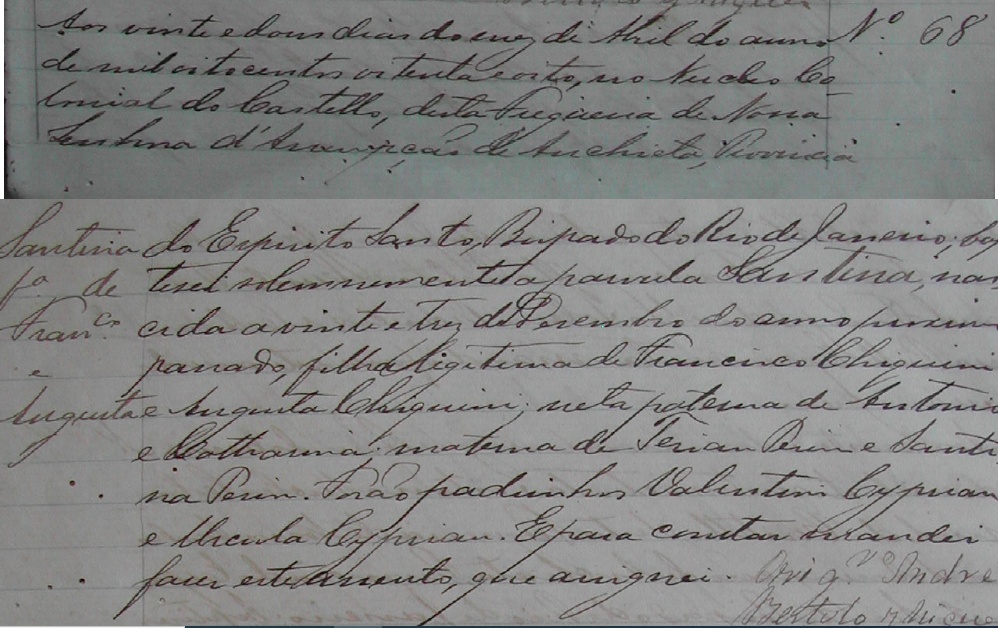 Nº 68
Aos vinte e dous dias do mez de Abril do anno
de mil oitocentos oitenta e oito, no Nucleo Co-
lonial do Castello, desta Freguesia de Nossa
Senhora d'Assumpção de Anchieta, Provincia
do Espirito Santo, Bispado do Rio de Janeiro, bap
tisei solemnemente a parvula Santina, nas
cida a vinte e tres de Dezembro do anno proximo
passado, filha legitima de Francisco Chiquini
e Augusta Chiquini; neta paterna de Antonio
e Catharina; materna de Perin e Santi
na Perin. Forão padrinhos Valentim Cyprian
e Ursula Cyprian. E para constar mandei
fazer este assento, que assignei.
Santina
fª de
Franco
e
Augusta
Andre